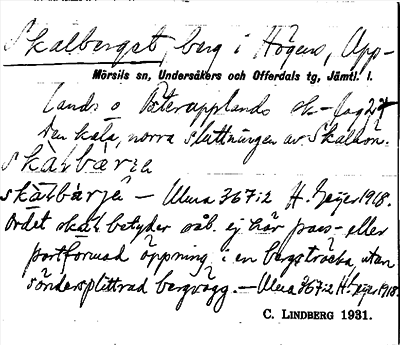 Skalberget, berg i Högen, Upp-
Mörsils sn, Undersåkers och Offerdals tg, Jämtl. l.
lands o Österupplands
Den kala, norra sluttningen av Skalhön.
skàrbàrje
skàrbàrjè – Ulma 367:2 H. Geijer 1918.
Ordet skar betyder oåb. ej här pass- eller
portformad öppning i en bergsträcka utan
söndersplittrad bergvägg. – Ulma 367:2 H. Geijer 1918.
C. LINDBERG 1931.